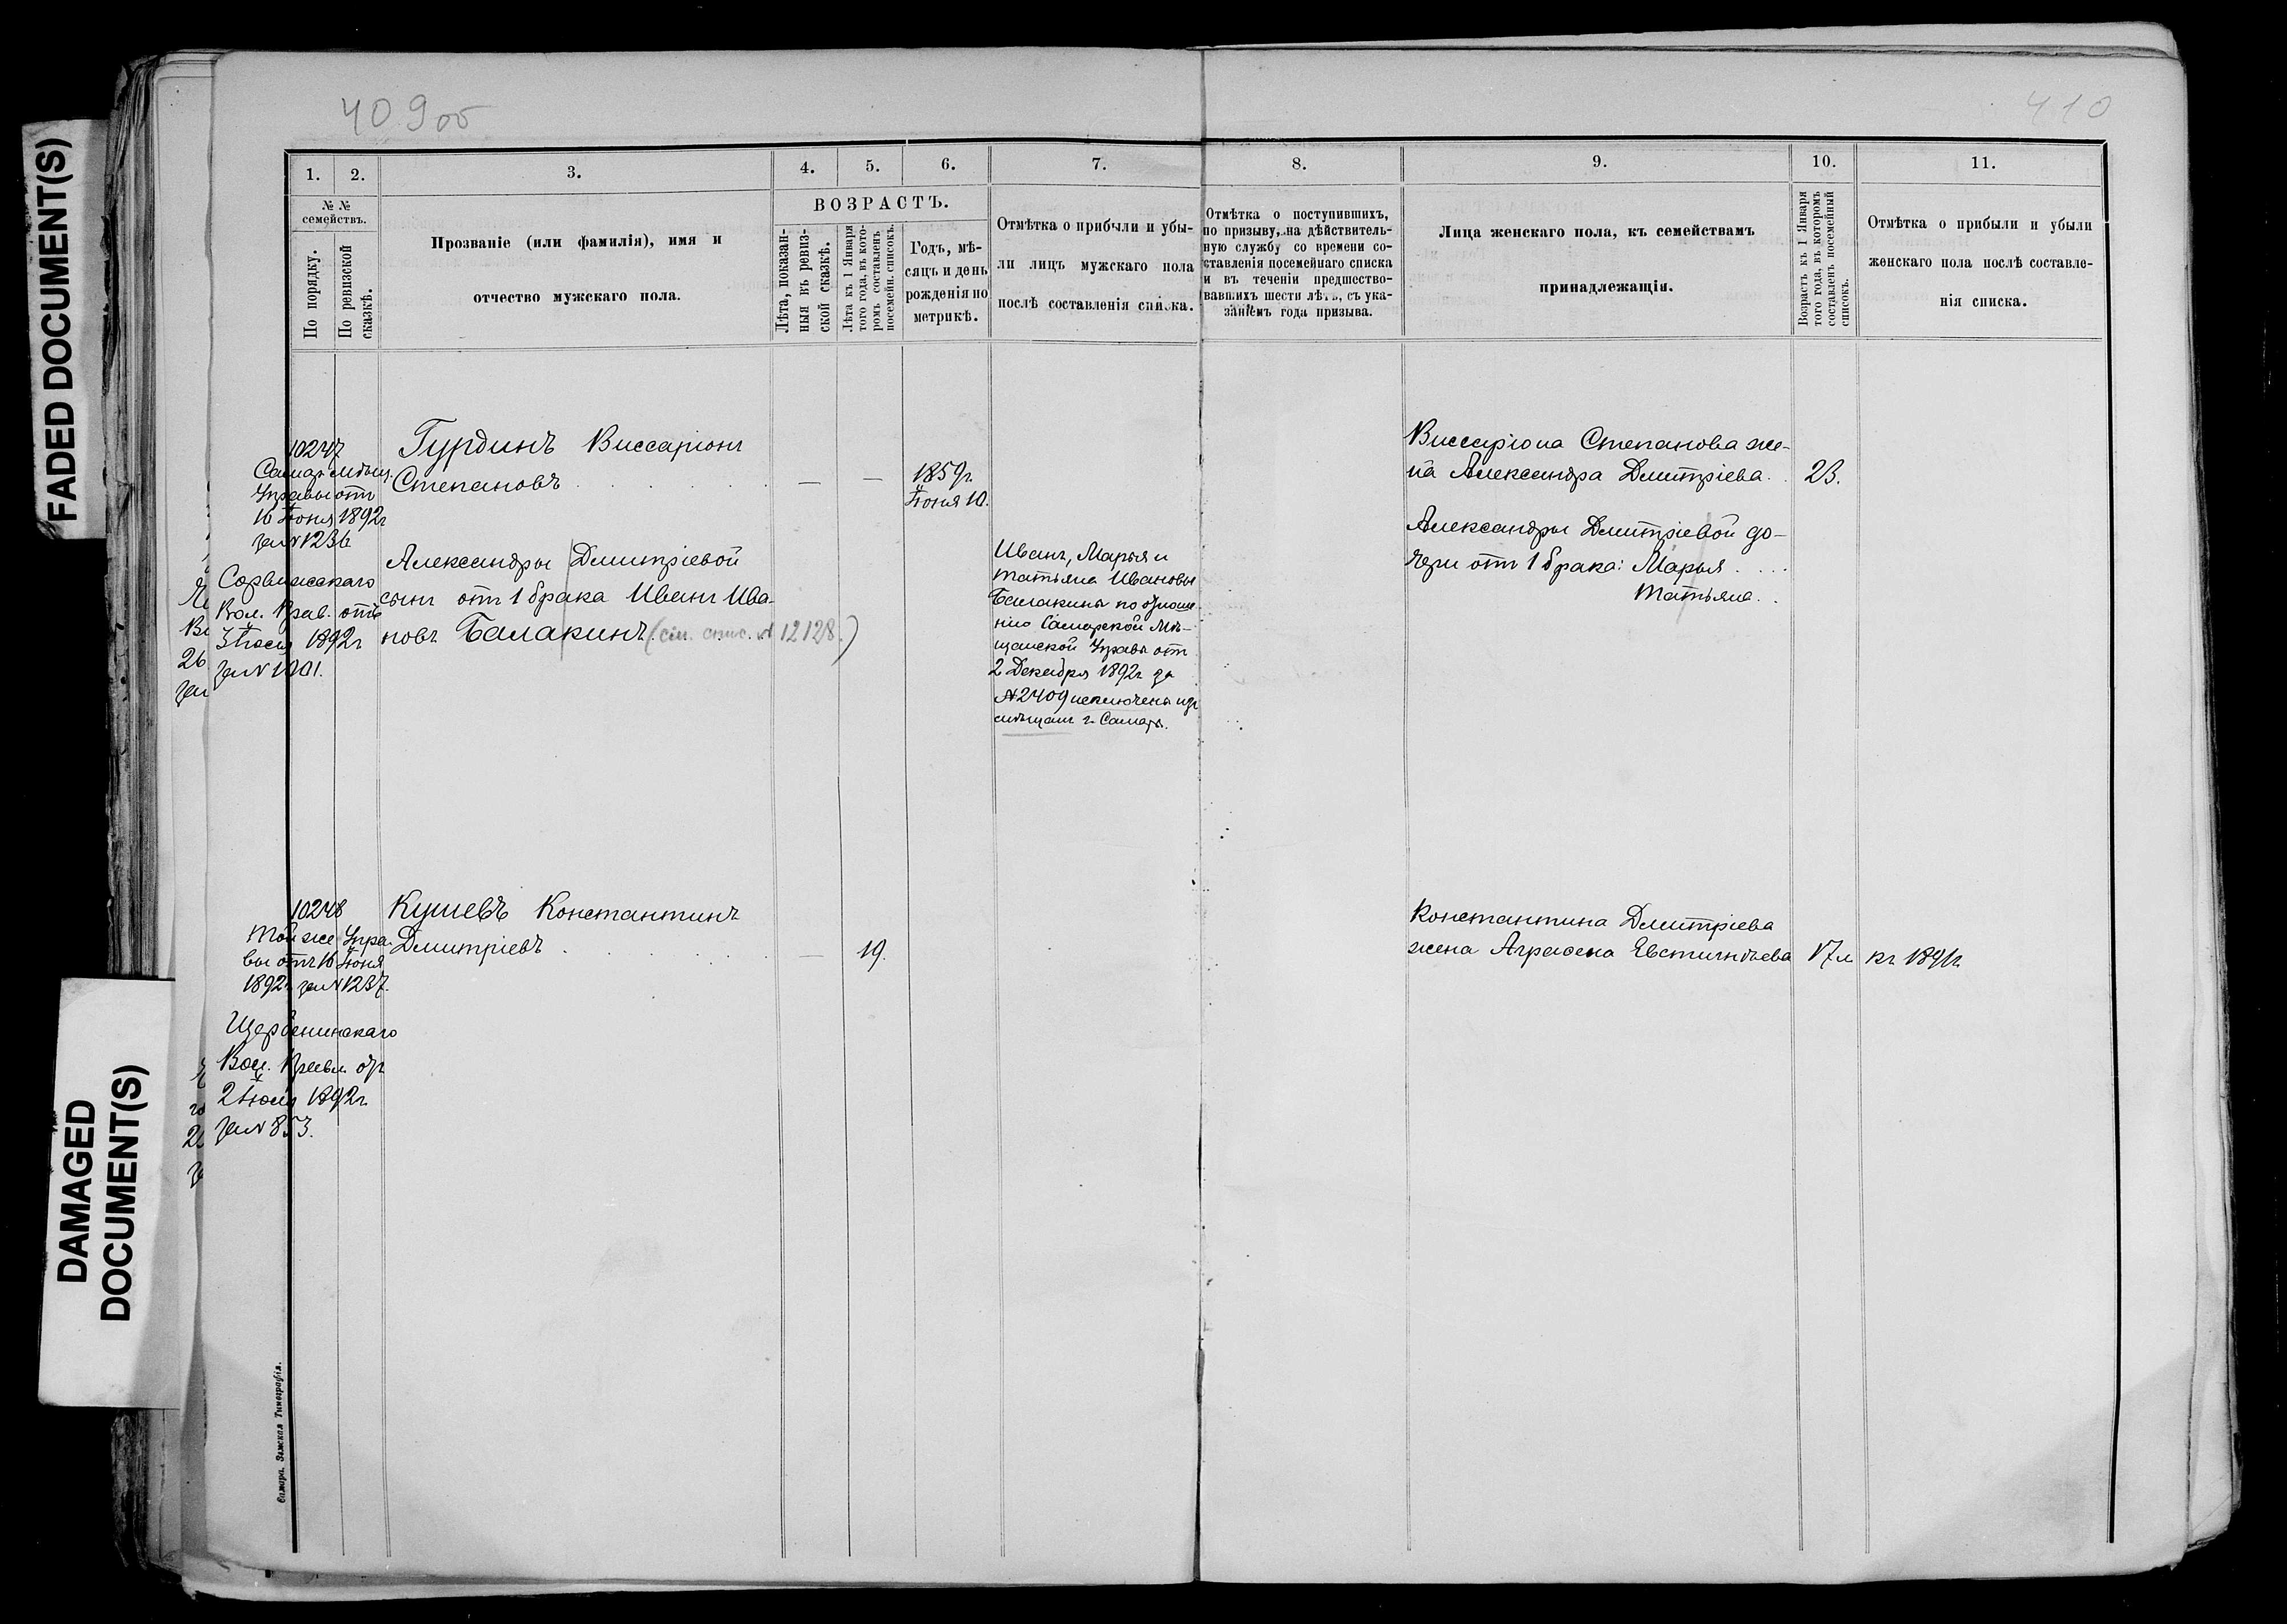 FADED DOCUMENT(S)
DAMAGED
DOCUMENT(S)
409об
410
1.
2.
3.
4.
5.
6.
7.
8.
9.
10.
11.
№ №
семействъ.
По порядку.
По ревизской
сказкѣ.
Прозваніе (или фамилія), имя и
отчество мужскаго пола.
ВОЗРАСТЪ.
Лѣта, показан-
ныя въ ревиз-
ской сказкѣ.
Лѣта къ 1 Января
того года, въ кото-
ромъ составленъ
посемейн. списокъ.
Годъ, мѣ-
сяцъ и день
рожденія по
метрикѣ.
Отмѣтка о прибыли и убы-
ли лицъ мужскаго пола
послѣ составленія списка.
Отмѣтка о поступившихъ,
по призыву, на дѣйствитель-
ную службу со времени со-
ставленія посемейнаго списка
и въ теченіи предшество-
вавшихъ шести лѣтъ, съ ука-
заніемъ года призыва.
Лица женскаго пола, къ семействамъ
принадлежащія.
Возрастъ къ 1 Января
того года, въ которомъ
составленъ посемейный
списокъ.
Отмѣтка о прибыли и убыли
женскаго пола послѣ составле-
нія списка.
10247
Самар. мѣщ.
Управы отъ
16 Іюня 1892г
за № 1236
Вол. Прав. отъ
3 Іюля 1892г
за №
Гурдинъ Виссаріонъ
Степановъ
— — 1859г.
Іюня 10.
Александры Дмитріевой
сынъ отъ 1 брака Иванъ Ива-
новъ Балакинъ (см. спис. № 12128.)
Иванъ, Марья и
Татьяна Ивановы
Балакины по отноше-
нію Самарской Мѣ-
щанской Управы отъ
2 Декабря 1892г за
№ 2409 исключены изъ
мѣщанъ г. Самары.
Виссаріона Степанова же-
на Александра Дмитріева. 23.
Александры Дмитріевой до-
чери отъ 1 брака: Марья
Татьяна
10248
Той же Упра-
вы отъ 16 Іюня
1892г за № 1237.
Щербенинскаго
Вол. Правл. отъ
2 Іюля 1892г.
за № 853.
Кушевъ Константинъ
Дмитріевъ — 19.
Константина Дмитріева
жена Аграфена Евстигнѣева 17 л къ 1891г.
Самара. Земская Типографія.